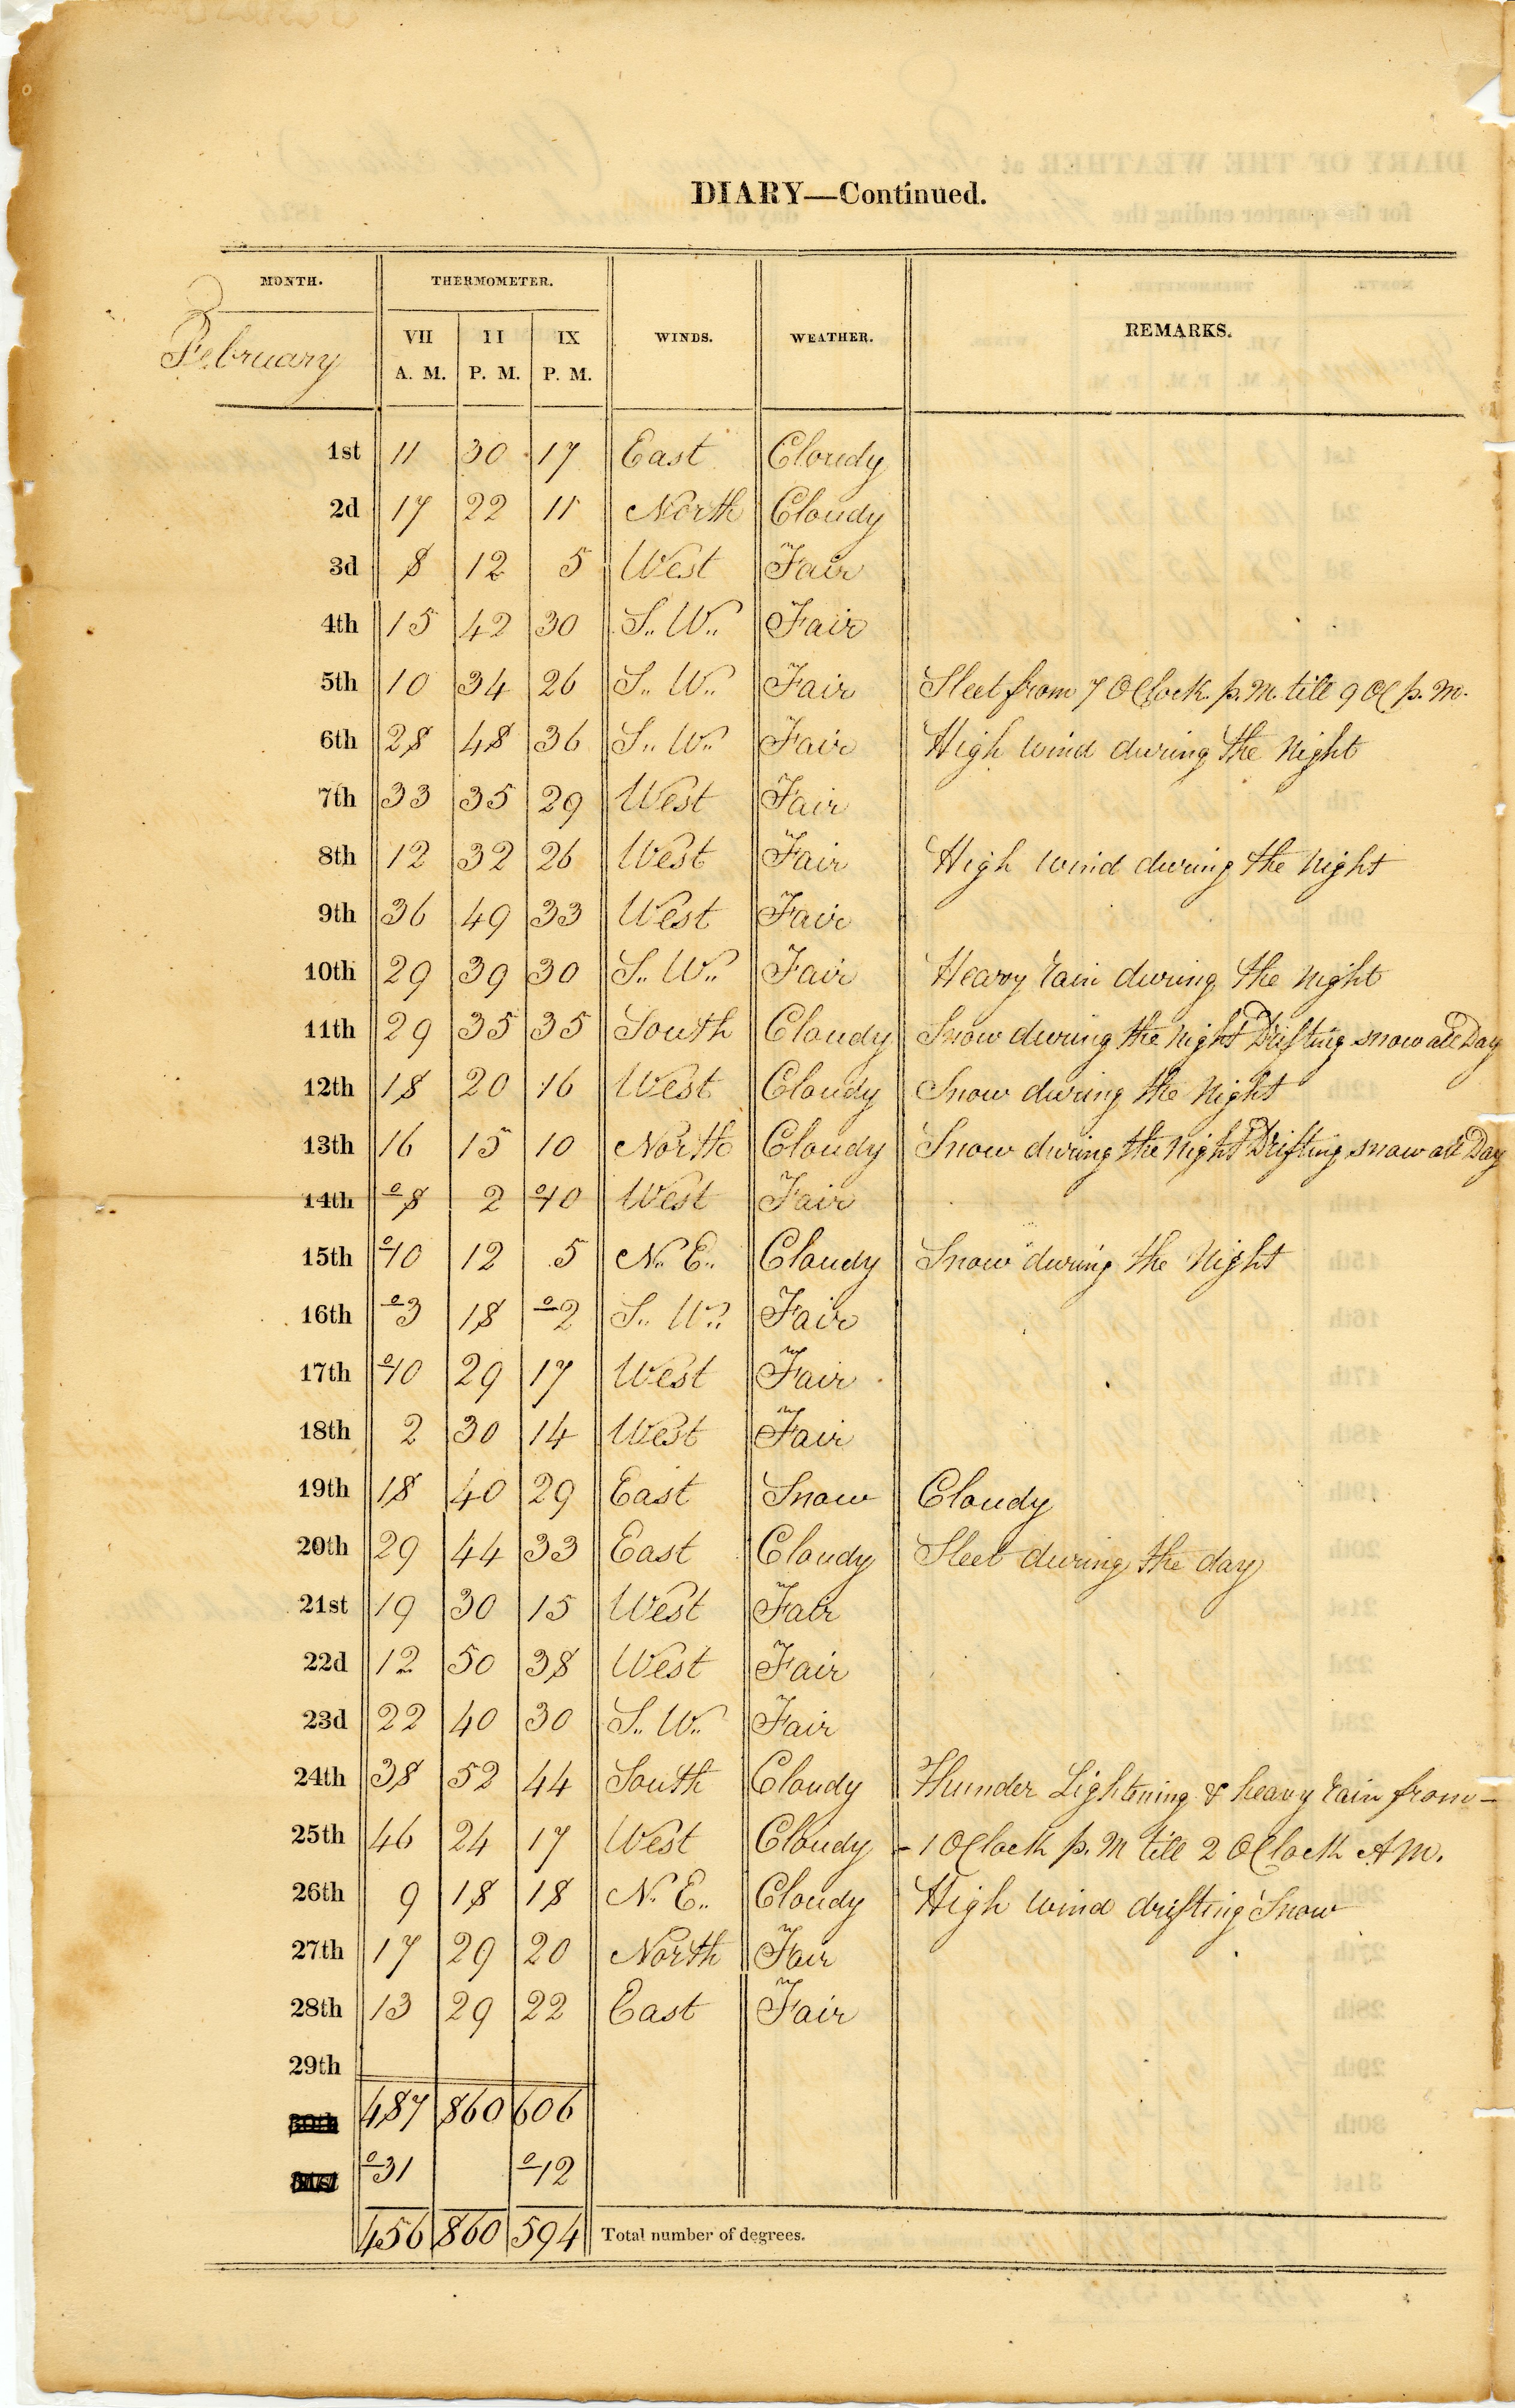 DIARY—Continued.
MONTH. THERMOMETER. WINDS. WEATHER. REMARKS.
February VII A. M. II P. M. IX P. M.
1st 11 30 17 East Cloudy
2d 17 22 11 North Cloudy
3d 8 12 5 West Fair
4th 15 42 30 S.. W.. Fair
5th 10 34 26 S.. W.. Fair Sleet from 7 OClock. p. M. till 9 OC p. M.
6th 28 48 36 S.. W.. Fair High wind during the Night
7th 33 35 29 West Fair
8th 12 32 26 West Fair High wind during the Night
9th 36 49 33 West Fair
10th 29 39 30 S.. W.. Fair Heavy rain during the Night
11th 29 35 35 South Cloudy Snow during the Night Drifting snow all Day
12th 18 20 16 West Cloudy Snow during the Night
13th 16 15 10 North Cloudy Snow during the Night Drifting snow all Day
14th o-8 2 o-10 West Fair
15th o-10 12 5 N.. E.. Cloudy Snow during the Night
16th o-3 18 o-2 S.. W.. Fair
17th o-10 29 17 West Fair
18th 2 30 14 West Fair
19th 18 40 29 East Snow Cloudy
20th 29 44 33 East Cloudy Sleet during the day
21st 19 30 15 West Fair
22d 12 50 38 West Fair
23d 22 40 30 S.. W.. Fair
24th 38 52 44 South Cloudy Thunder Lightning & heavy rain from –
25th 46 24 17 West Cloudy – 1 OClock p. M till 2 OClock AM.
26th 9 18 18 N. E.. Cloudy High wind drifting Snow
27th 17 29 20 North Fair
28th 13 29 22 East Fair
29th
30th 487 860 606
31st o-31 o-12
456 860 594 Total number of degrees.